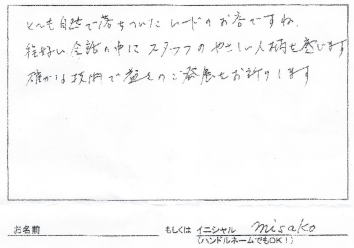 とても自然で落ちついたムードのお店ですね。
会話の中にスタッフのやさしい人柄を感じます
確かな技術で益々のご発展をお祈りします
お名前 もしくは イニシャル misako
(ハンドルネームでもOK!)